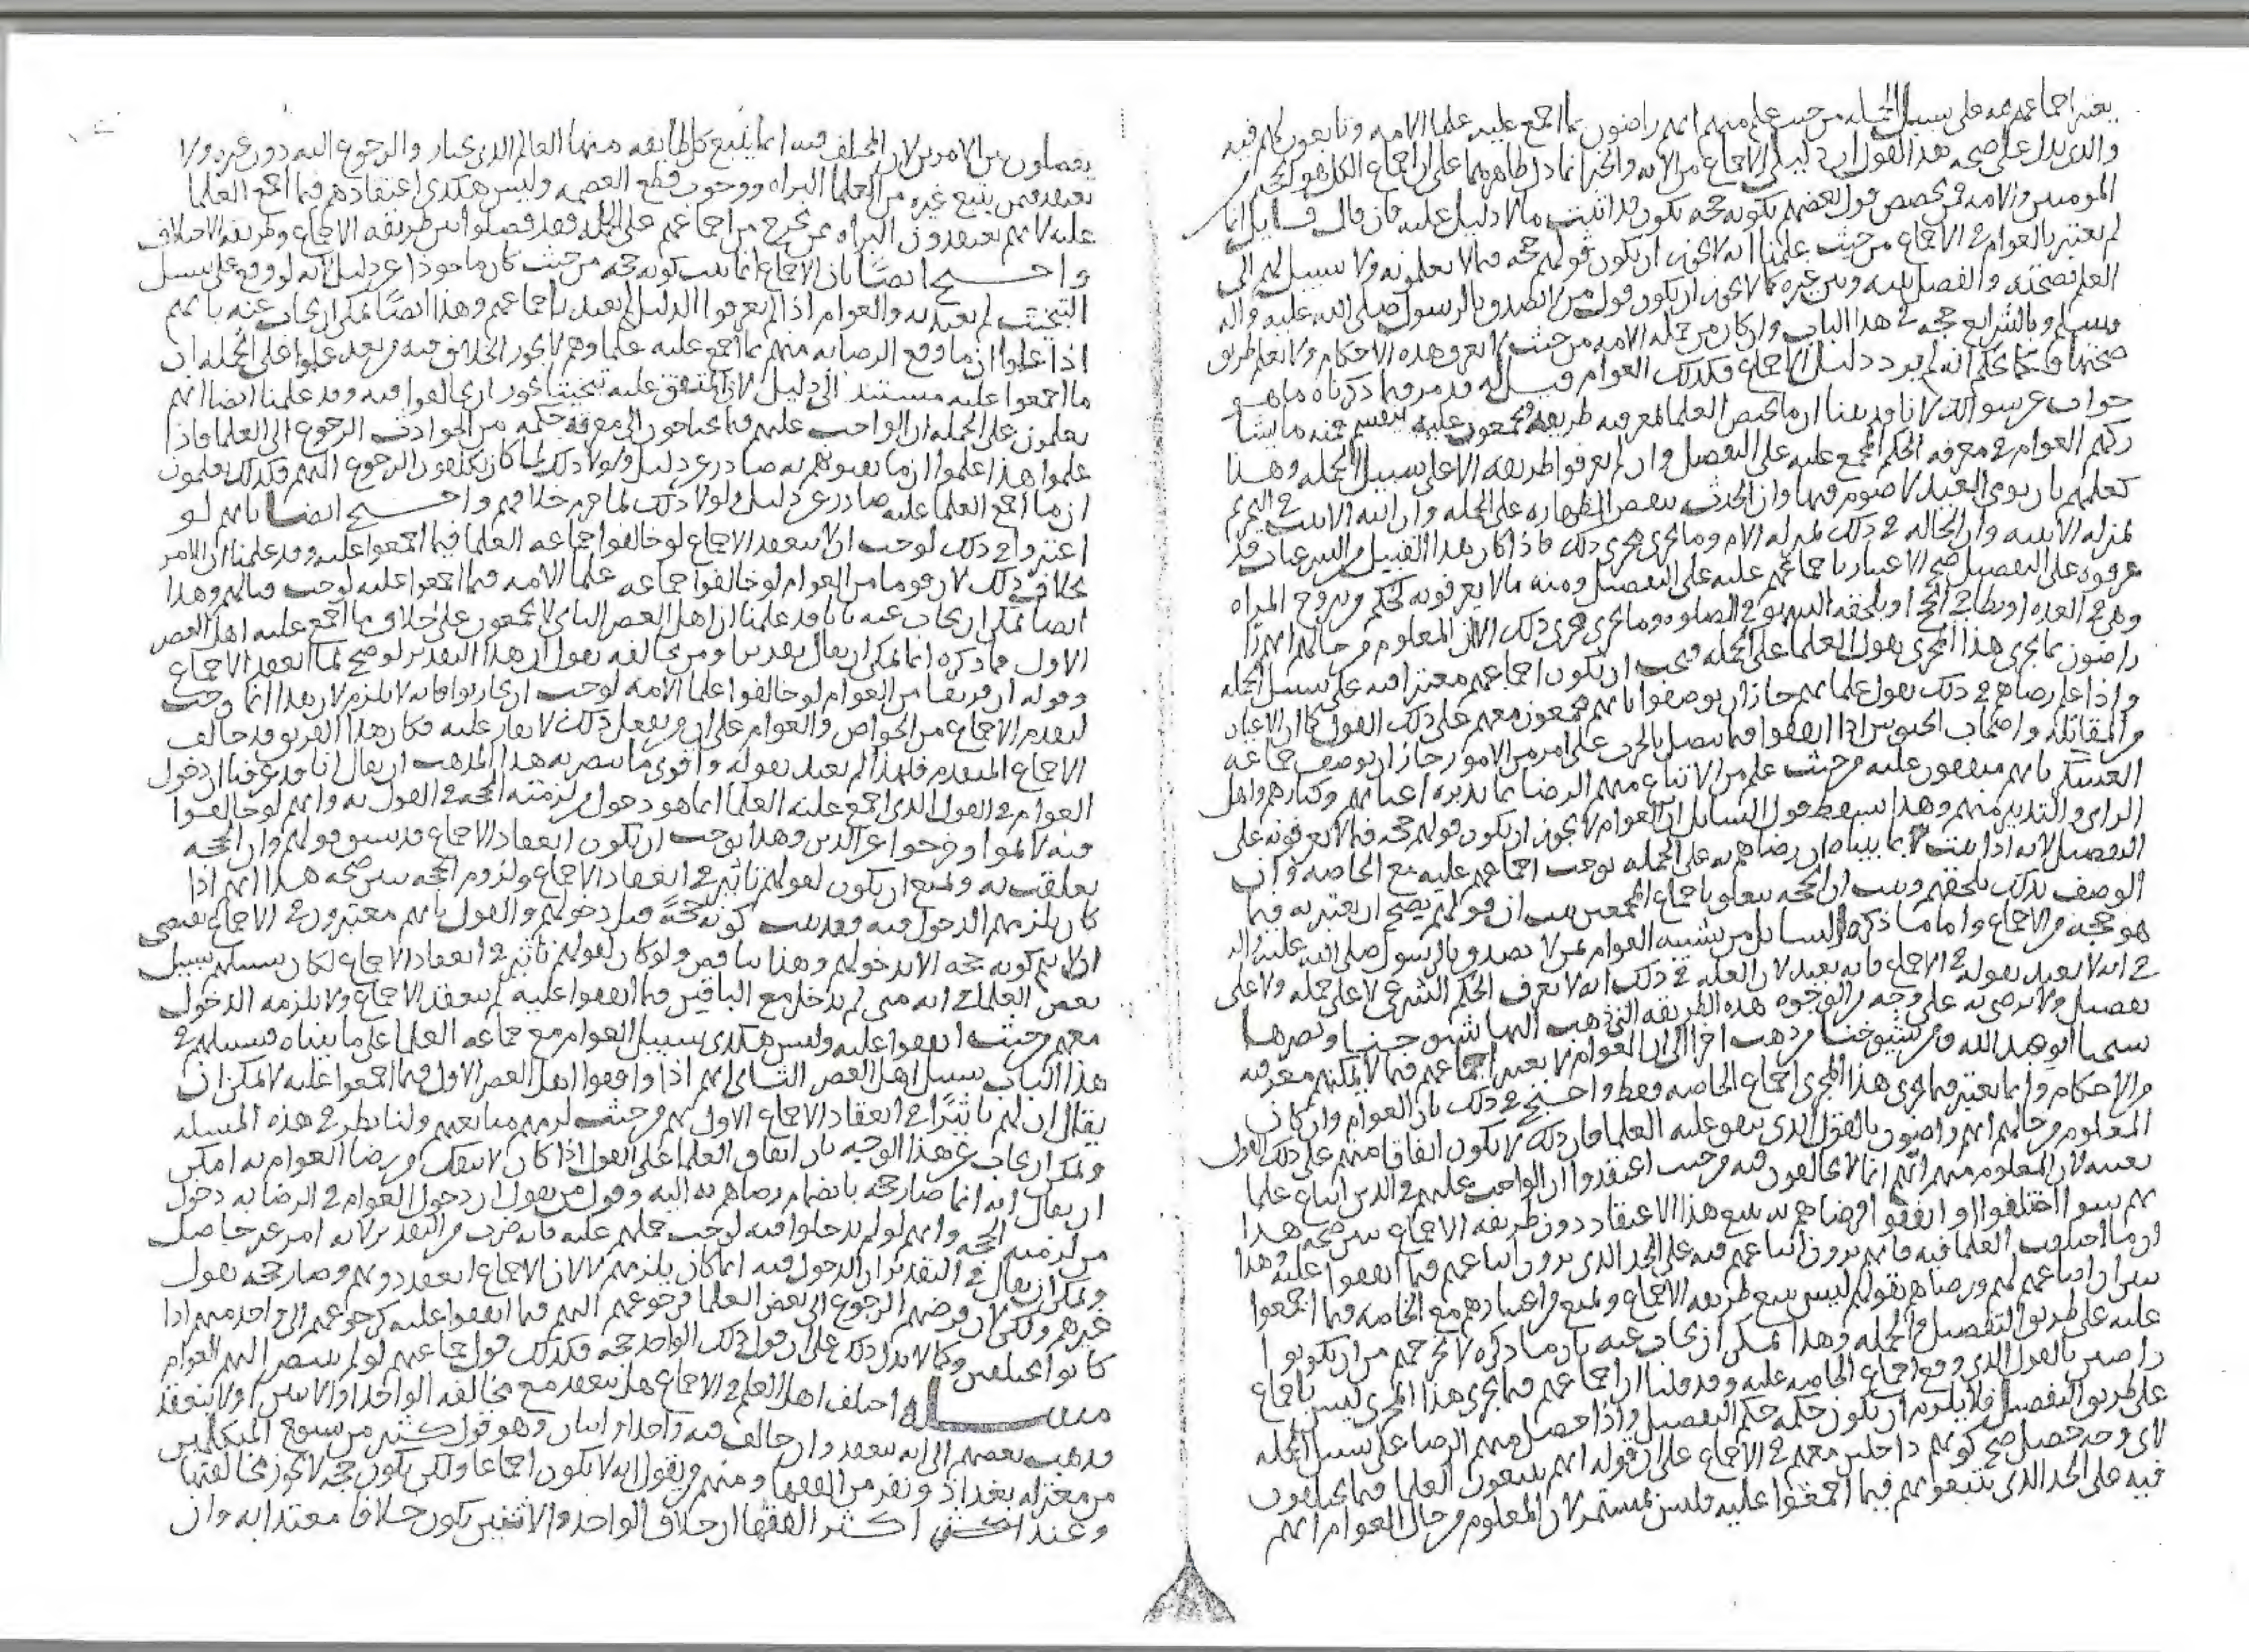 يعتبر اجماعهم فيه على سبيل الجمله من حيث علم منهم انهم راضون بما اجمع عليه علما الامه وتابعون لهم فيه
والذي يدل على صحه هذا القول ان دليلي الاجماع من الايه والخبر انما دل ظاهرهما على ان اجماع الكل هو الحجه
المومنين والامه فمن خصص قول بعضهم بكونه حجه يكون قد اثبت ما لا دليل عليه فان قال قايل انا
لم نعتبر بالعوام في الاجماع من حيث علمنا انه لا يجوز ان يكون قولهم حجه فيما لا يعلمونه ولا سبيل لهم الى
العلم بصحته والفصل بينه وبين غيره كما لا يجوز ان يكون قول من لا يصدق بالرسول صلى الله عليه واله
وسلم وبالشرايع حجه في هذا الباب وان كان من جمله الامه من حيث لا يعرف هذه الاحكام ولا يعلم طريق
صحتها فكما نحكم انه لم يرد دليل الاجماع فكذلك العوام قيل له قد مر فيما ذكرناه ما هو
جواب عن سوالك لانا قد بينا ان ما يختص العلما لمعرفه طريقه مجمعون عليه ينقسم فمنه ما يشاركهم
العوام في معرفه الحكم المجمع عليه على التفصيل وان لم يعرفوا طريقه الا على سبيل الجمله وهذا
كعلمهم بان يومي العيد لا صوم فيهما وان الحدث ينقض الطهاره على الجمله وان ابنه الابنه في التحريم
بمنزله الابنه وان الخاله في ذلك بمنزله الام وما يجري مجرى ذلك فاذا كان هذا القبيل من الشرعيات قد
عرفوه على التفصيل صح الاعتبار باجماعهم عليه على التفصيل ومنه ما لا يعرفونه كحكم من تزوج المراه
وهي في العده او يطا في الحج او يلحقه السهو في الصلوه وما يجري مجرى ذلك الا ان المعلوم من حالهم انهم
راضون بما يجري هذا المجرى بقول العلما على الجمله فيجب ان يكون اجماعهم معتبرا فيه على سبيل الجمله
واذا علم رضاهم في ذلك بقول علمايهم جاز ان يوصفوا بانهم مجمعون معهم على ذلك القول كما ان الاعيان
من المقاتله واصحاب الجيوش اذا اتفقوا فيما يتصل بالحرب على امر من الامور جاز ان يوصف جماعه
العسكر بانهم متفقون عليه من حيث علم من الاتباع منهم الرضا بما يدبره اعيانهم وكبارهم واهل
الراي والتدبير منهم وهذا يسقط قول السايل ان العوام لا يجوز ان يكون قولهم حجه فيما لا يعرفونه على
التفصيل لانه اذا ثبت بما بيناه ان رضاهم به على الجمله يوجب اجماعهم عليه مع الخاصه وان
الوصف بذلك يلحقهم وثبت ان الحجه يتعلق باجماع المجمعين ثبت ان قولهم يصح ان يعتبر به فيما
هو حجه من الاجماع واما ما ذكره السايل من تشبيه العوام بمن لا يصدق بالرسول صلى الله عليه واله
في انه لا يعتد بقوله في الاجماع فانه بعيد لان العله في ذلك انه لا يعرف الحكم الشرعي لا على جمله ولا على
تفصيل ولا يرضى به على وجه من الوجوه هذه الطريقه التي ذهب اليها شيوخنا ونصرها
شيخنا ابو عبد الله ومن شيوخنا من ذهب اخرا الى ان العوام لا يعتبر اجماعهم فيما لا يمكنهم معرفته
من الاحكام وانما يعتبر فيما يجري هذا المجرى اجماع الخاصه فقط واحتج في ذلك بان العوام وان كان
المعلوم من حالهم انهم راضون بالقول الذي يتفق عليه العلما فان ذلك لا يكون اتفاقا منهم على ذلك القول
بعينه لان المعلوم منهم انهم انما لا يخالفون فيه من حيث اعتقدوا ان الواجب عليهم في الدين اتباع علما
يهم سوا اختلفوا او اتفقوا فرضاهم به يتبع هذا الاعتقاد دون طريقه الاجماع يبين صحه هذا
ان ما اختلف العلما فيه فانهم يرون اتباعهم فيه على الحد الذي يرون اتباعهم فيما اتفقوا عليه وهذا
يبين ان اتباعهم لهم ورضاهم بقولهم ليس يتبع طريقه الاجماع ويمنع من اعتبارهم مع الخاصه فيما اجمعوا
عليه على طريق التفصيل والجمله وهذا يمكن ان يجاب عنه بان ما ذكره لا يخرجهم من ان يكونوا
راضين بالقول الذي وقع اجماع الخاصه عليه وقد قلنا ان اجماعهم فيما يجري هذا المجرى ليس باجماع
على طريق التفصيل فلا يلزم ان يكون حكمه حكم التفصيل واذا حصل منهم الرضا على سبيل الجمله
لاي وجه حصل صح كونهم داخلين معهم في الاجماع على ان قوله انهم يتبعون العلما فيما يختلفون
فيه على الحد الذي يتبعونهم فيما اجمعوا عليه فليس بمستمر لان المعلوم من حال العوام انهم
يفصلون بين الامرين لان المختلف فيه انما يتبع كل طايفه منهما العالم الذي يختار والرجوع اليه دون غيره ولا
يعتقد فيمن يتبع غيره من العلما البراه ووجوب قطع العصمه وليس هكذى اعتقادهم فيما اجمع العلما
عليه لانهم يعتقدون البراه ممن يخرج من اجماعهم على الجمله فقد فصلوا بين طريقه الاجماع وطريقه الاختلاف
واحتج ايضا بان الاجماع انما يثبت كونه حجه من حيث كان ماخوذا عن دليل لانه لو وقع على سبيل
التبخيت لم يعتد به والعوام اذا لم يعرفوا الدليل لم يعتد باجماعهم وهذا ايضا يمكن ان يجاب عنه بانهم
اذا علموا ان ما وقع الرضا به منهم مما اجمع عليه علماوهم لا يجوز الخلاف فيه فقد علموا على الجمله ان
ما اجمعوا عليه مستند الى دليل لان المتفق عليه تبخيتا يجوز ان يخالفوا فيه وقد علمنا ايضا انهم
يعلمون على الجمله ان الواجب عليهم فيما يحتاجون الى معرفه حكمه من الحوادث الرجوع الى العلما فاذا
علموا هذا علموا ان ما يفتونهم به صادر عن دليل ولولا ذلك لما كان يكلفون الرجوع اليهم فكذلك يعلمون
ان ما اجمع العلما عليه صادر عن دليل ولولا ذلك لما حرم خلافهم واحتج ايضا بانهم لو
اعتبروا في ذلك لوجب ان لا ينعقد الاجماع لو خالفوا جماعه العلما فيما اجمعوا عليه وقد علمنا ان الامر
بخلاف ذلك لان قوما من العوام لو خالفوا جماعه علما الامه فيما اجمعوا عليه لوجب قتالهم وهذا
ايضا يمكن ان يجاب عنه بانا قد علمنا ان اهل العصر الثاني لا يجمعون على خلاف ما اجمع عليه اهل العصر
الاول فما ذكره انما يمكن ان يقال تقديرا ومن يخالفه يقول ان هذا التقدير لو صح لما انعقد الاجماع
وقوله ان فريقا من العوام لو خالفوا علما الامه لوجب ان يحاربوا فانه لا يلزم لان هذا انما وجب
لتقدم الاجماع من الخواص والعوام على ان من يفعل ذلك لا يقار عليه فكان هذا الفريق قد خالف
الاجماع المتقدم فلهذا لم يعتد بقوله واقوى ما ينصر به هذا المذهب ان يقال انا قد عرفنا ان دخول
العوام في القول الذي اجمع عليه العلما انما هو دخول من لزمته الحجه في القول به وانهم لو خالفوا
فيه لاثموا وخرجوا عن الدين وهذا يوجب ان يكون انعقاد الاجماع قد سبق قولهم وان الحجه
تعلقت به ويمنع ان يكون لقولهم تاثير في انعقاد الاجماع ولزوم الحجه يبين صحه هذا انهم اذا
كان يلزمهم الدخول فيه فقد ثبت كونه حجة قبل دخولهم والقول بانهم معتبرون في الاجماع يقتضي
ان لا يتم كونه حجه الا بدخولهم وهذا يتناقض ولو كان لقولهم تاثير في انعقاد الاجماع لكان سبيلهم سبيل
بعض العلما في انه متى لم يدخل مع الباقين فيما اتفقوا عليه لم ينعقد الاجماع ولا يلزمه الدخول
معهم من حيث اتفقوا عليه وليس هكذى سبيل العوام مع جماعه العلما على ما بيناه فسبيلهم في
هذا الباب سبيل اهل العصر الثاني انهم اذا وافقوا اهل العصر الاول فيما اجمعوا عليه لا يمكن ان
يقال ان لهم تاثيرا في انعقاد الاجماع الاول بهم من حيث لزمهم متابعتهم ولنا نظر في هذه المسله
ويمكن ان يجاب عن هذا الوجه بان اتفاق العلما على القول اذا كان لا ينفك من رضا العوام به امكن
ان يقال انه انما صار حجه بانضمام رضاهم به اليه وقول من يقول ان دخول العوام في الرضا به دخول
من لزمته الحجه وانهم لو لم يدخلوا فيه لوجب حملهم عليه فانه ضرب من التقدير لانه امر غير حاصل
ويمكن ان يقال في التقدير ان الدخول فيه انما كان يلزمهم لا لان الاجماع انعقد دونهم وصار حجه بقول
غيرهم ولكن لان فرضهم الرجوع الى بعض العلما فرجوعهم اليهم فيما اتفقوا عليه كرجوعهم الى واحد منهم اذا
كانوا مختلفين وكما لا يدل ذلك على ان قول ذلك الواحد حجه فكذلك قول جماعتهم لو لم ينضم اليهم العوام
مسله اختلف اهل العلم في الاجماع هل ينعقد مع مخالفه الواحد او الاثنين او لا ينعقد
فذهب بعضهم الى انه ينعقد وان خالف فيه واحد او اثنان وهو قول كثير من شيوخ المتكلمين
من معتزله بغداذ ونفر من الفقها ومنهم من يقول انه لا يكون اجماعا ولكن يكون حجه لا يجوز مخالفتها
وعند اكثر الفقها ان خلاف الواحد والاثنين يكون خلافا معتدا به وان